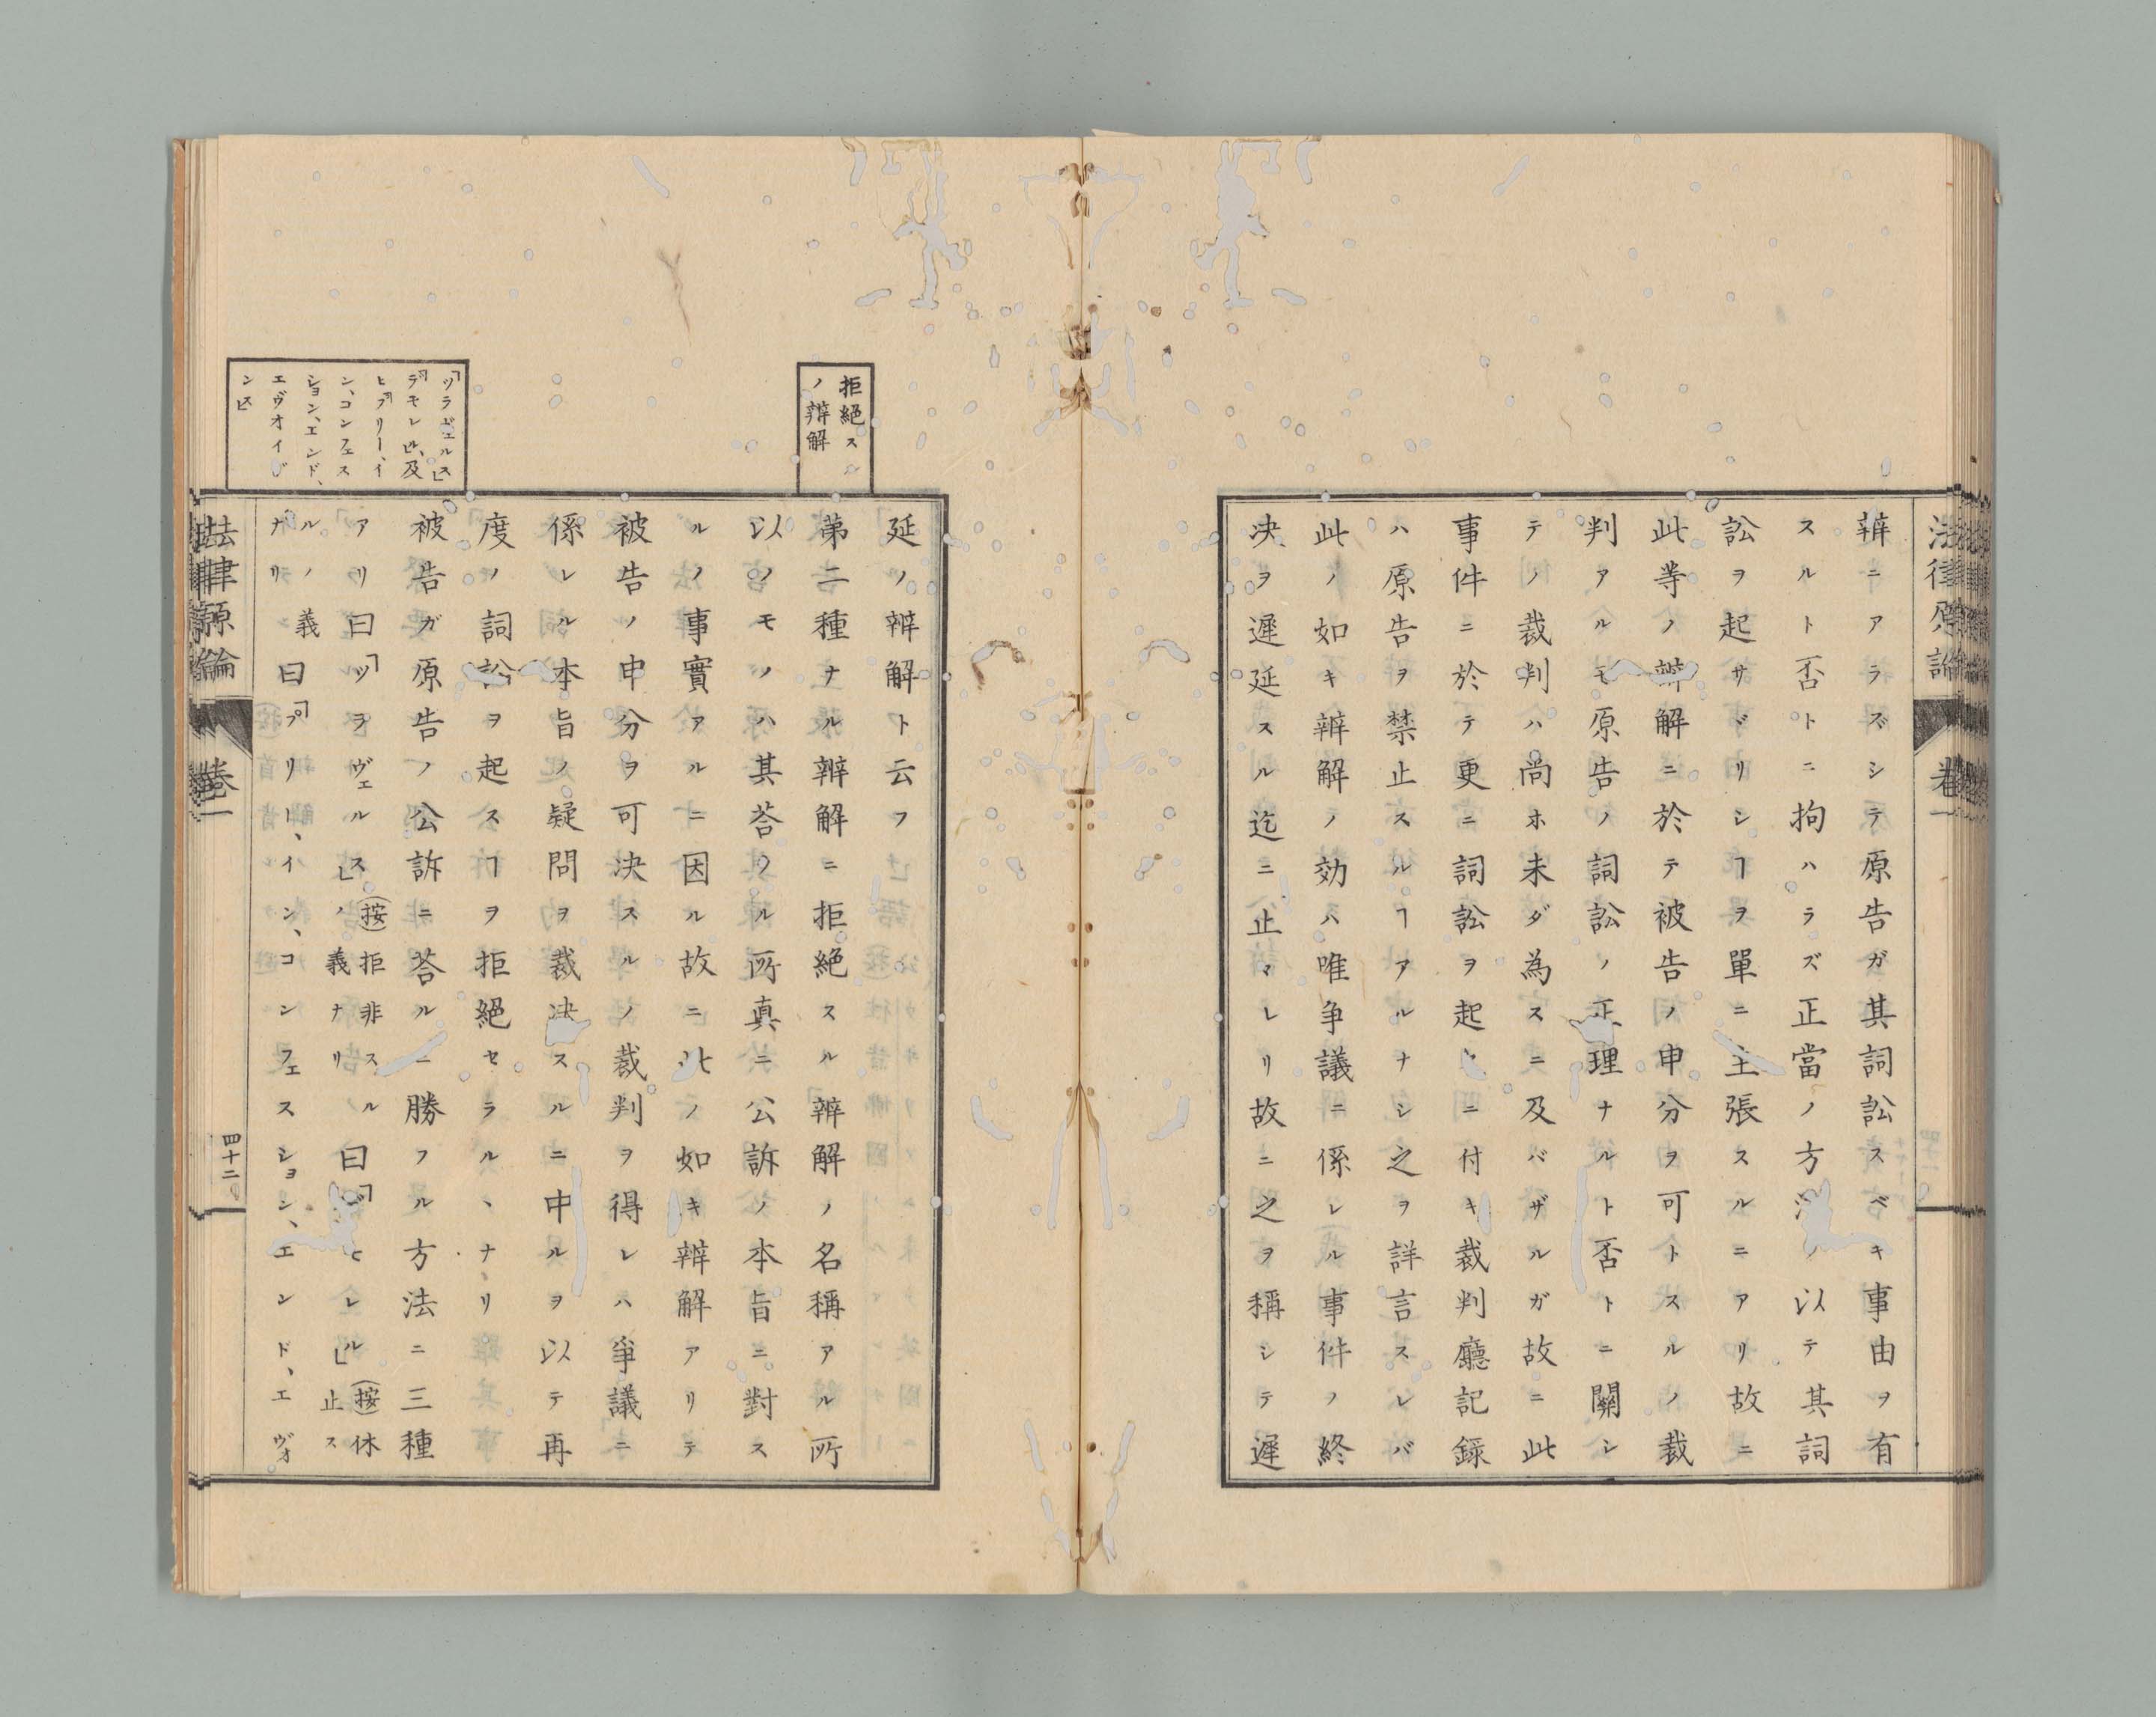 法律原論
卷一
辨ニアラズシテ原告ガ其詞訟スベキ事由ヲ有
スルト否トニ拘ハラズ正當ノ方法ノ以テ其詞
訟ヲ起サヾリシヿヲ單ニ主張スルニアリ故ニ
此等ノ辨解ニ於テ被告ノ申分ヲ可トスルノ裁
判アルモ原告ノ詞訟ノ正理ナルト否トニ關シ
テノ裁判ハ尚ホ未ダ為スニ及バザルガ故ニ此
事件ニ於テ更ニ詞訟ヲ起ニ付キ裁判廳記錄
ハ原告ヲ禁止スルヿアルナシ之ヲ詳言スレバ
此ノ如キ辨解ノ効ハ唯爭議ニ係レル事件ノ終
决ヲ遲延スル迄ニ止マレリ故ニ之ヲ稱シテ遲
延ノ辨解ト云フ
拒絕スル
ノ辨解
第二種ナル辨解ニ拒絕スル辨解ノ名稱アル所
以ノモノハ其荅フル所真ニ公訴ノ本旨ニ對ス
ルノ事實アルニ因ル故ニ此ノ如キ辨解アリテ
被告ノ申分ヲ可决スルノ裁判ヲ得レハ爭議ニ
係レル本旨ノ疑問ヲ裁决スルニ中ルヲ以テ再
度ノ詞訟ヲ起スヿヲ拒絕セラルヽナリ
被告ガ原告ノ公訴ニ荅ルニ勝フル方法ニ三種
「ツラヴェルス」
「デモレル」及
ヒ「プリー、イ
ン、コンフェス
ション、エンド、
エヴオイダ
ンス」
アリ曰「ツラヴェルス」(按)拒非スルノ義ナリ曰「デモレル」(按)休止ス
ルノ義ナリ曰「プリー、イン、コンフェスション、エンド、エヴォ
法律原論
卷一
四十二